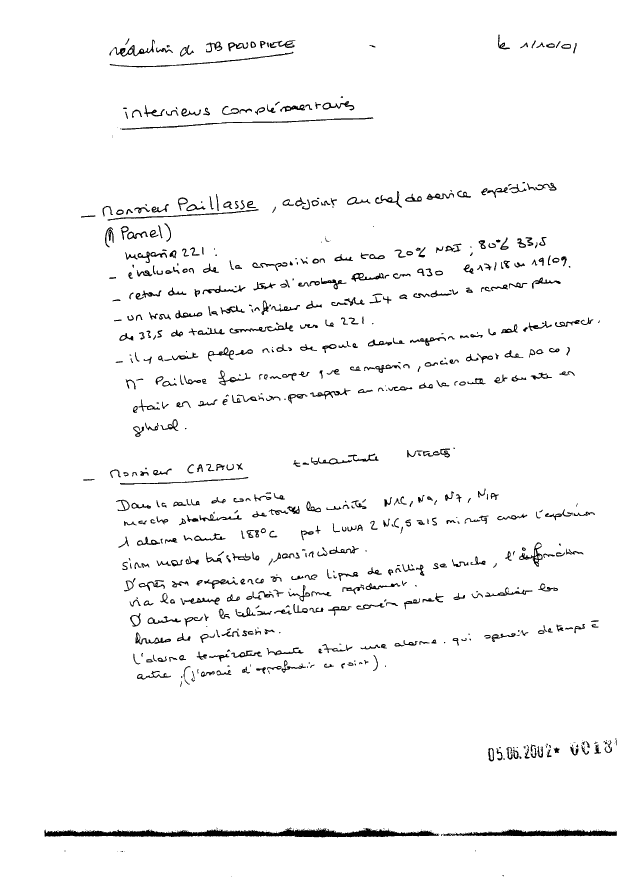 rédaction de JB PEUDPIECE le 1/10/01
interviews complémentaires
— Monsieur Paillasse, adjoint au chef de service expéditions
(M Pamel)
magasin 221 :
- évaluation de la composition du tas 20% NAI ; 80% 33,5
- retour du produit test d'enrobage fluidiram 930 le 17/18 ou 19/09.
- un trou dans la toile inférieur du crible I4 a conduit à ramener plus
de 33,5 de taille commerciale vers le 221.
- il y avait quelques nids de poule dans le magasin mais le sol était correct.
Mr Paillasse fait remarquer que ce magasin, ancien dépot de sacs,
etait en sur élévation par rapport au niveau de la route et du site en
général.
— Monsieur CAZAUX tableautiste Nitrates
Dans la salle de contrôle
marche stabilisée de toutes les unités N1C, N9, N7, N1A
1 alarme haute 188°C pot LUWA 2 NC, 5 à 15 minutes avant l'explosion
sinon marche très stable, sans incident.
D'après son expérience si une ligne de prilling se bouche, l'information
via la mesure de débit informe rapidement.
D'autre part la télésurveillance par caméra permet de visualiser les
buses de pulvérisation.
L'alarme température haute était une alarme qui apparait de temps à
autre, (j'essaie d'approfondir ce point).
05.06.2002* 0018